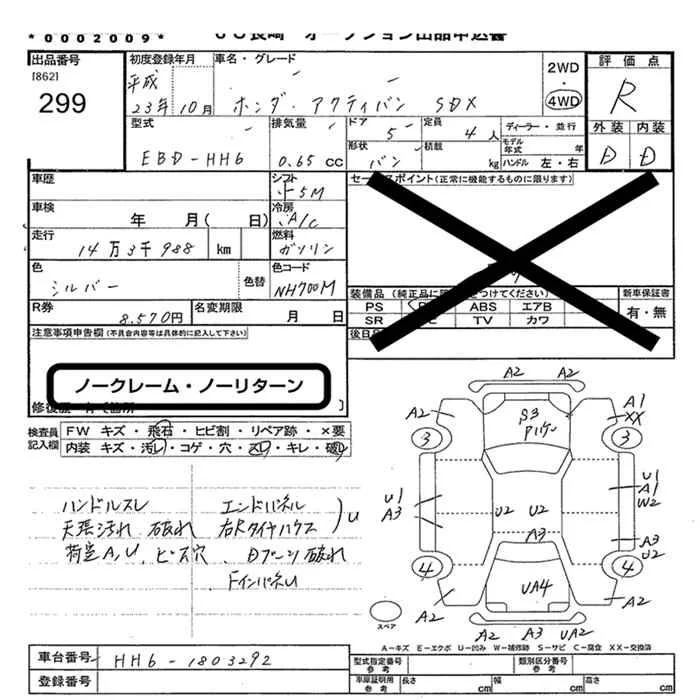 *0002009*
JU長崎 オークション出品申込書
出品番号
[862]
299
初度登録年月
平成
23年10月
車名・グレード
ホンダ・アクティバン SDX
2WD
・
4WD
評価点
R
外装 内装
D D
型式
EBD-HH6
排気量
0.65cc
ドア
5
形状
バン
定員
4人
積載
kg
ディーラー・並行
モデル年式 年
ハンドル 左・右
車歴
シフト
5M
車検
年 月( 日)
冷房
A/C
走行
14万3千988 km
燃料
ガソリン
色
シルバー
色替
色コード
NH700M
R券
8.570円
名変期限
月 日
セールスポイント(正常に機能するものに限ります)
装備品
PS ABS エアB
SR TV カワ
新車保証書
有・無
注意事項申告欄(不具合内容等は具体的に記入して下さい)
ノークレーム・ノーリターン
検査員
記入欄
FW キズ・飛石・ヒビ割・リペア跡・×要
内装 キズ・汚レ・コゲ・穴・スレ・キレ・破レ
ハンドルスレ エンドパネル
天張汚れ 破れ 右Rタイヤハウス U
荷室A,U、ビス穴、Dブーツ破れ
FインパネU
A2 A2
A2 S3 A1
Pハゲ XX
3 3
U1 U1
A3 A1
W2
U2 U2
A3 A3
U2
4 4
UA4
A2 A2
A2 A3 UA2
スペア
A-キズ E-エクボ U-凹み W-補修跡 S-サビ C-腐食 XX-交換済
車台番号
HH6-1803292
登録番号
型式指定番号
参考
類別区分番号
参考
車庫証明用
参考
長さ cm 幅 cm 高さ cm